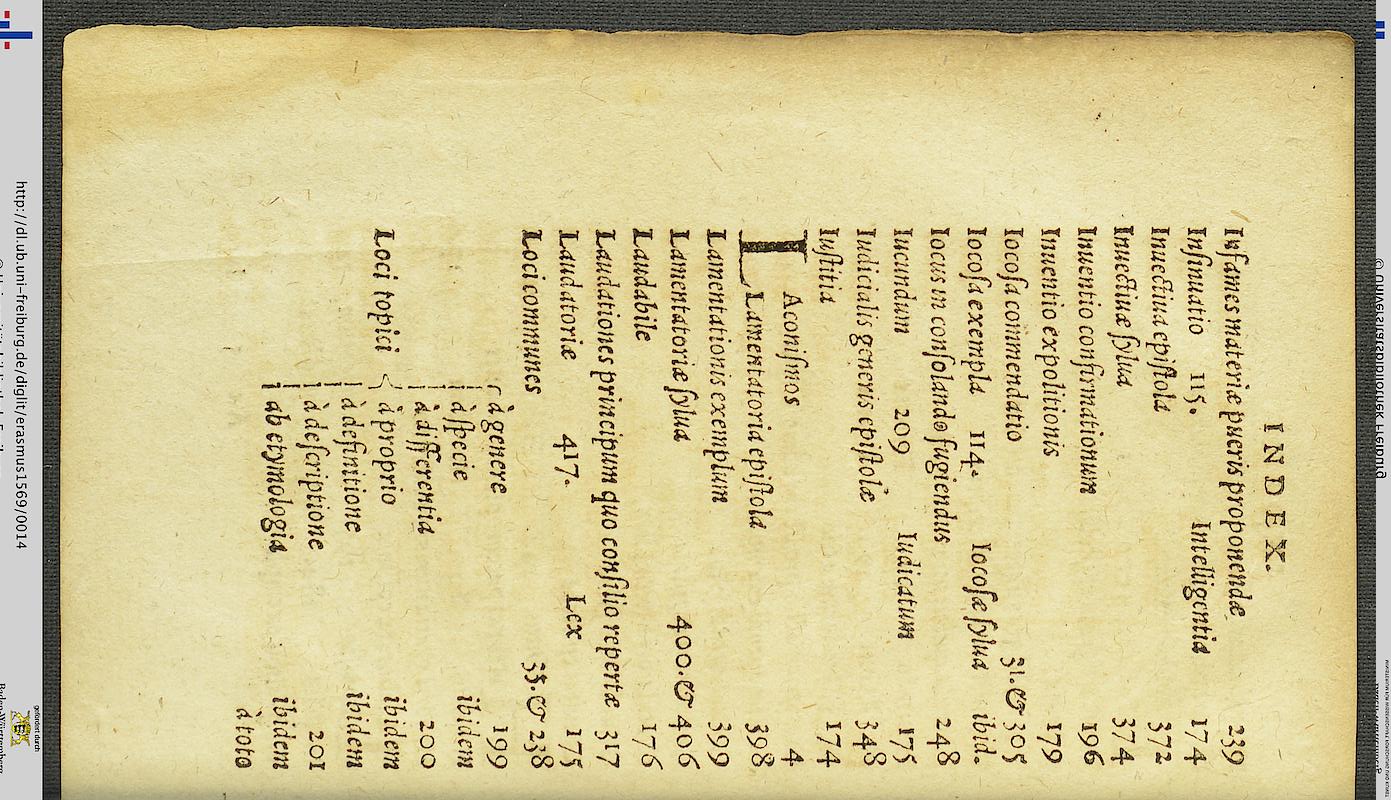 INDEX.
Infames materiæ pueris proponendæ 239
Inſinuatio 115. Intelligentia 174
Inuectiua epiſtola 372
Inuectiuæ ſylua 374
Inuentio confirmationum 196
Inuentio expolitionis 179
Iocoſa commendatio 31.& 305
Iocoſa exempla 114. Iocoſæ ſylua ibid.
Iocus in conſolando fugiendus 248
Iucundum 209 Iudicatum 175
Iudicialis generis epiſtolæ 348
Iuſtitia 174
LAconiſmos 4
Lamentatoria epiſtola 398
Lamentationis exemplum 399
Lamentatoriæ ſylua 400.& 406
Laudabile 176
Laudationes principum quo conſilio repertæ 317
Laudatoriæ 417. Lex 175
Loci communes 35.& 238
à genere 199
à ſpecie ibidem
à differentia 200
Loci topici à proprio ibidem
à definitione ibidem
à deſcriptione 201
ab etymologia ibidem
à toto
http://dl.ub.uni-freiburg.de/diglit/erasmus1569/0014
© Universitätsbibliothek Freiburg
gefördert durch